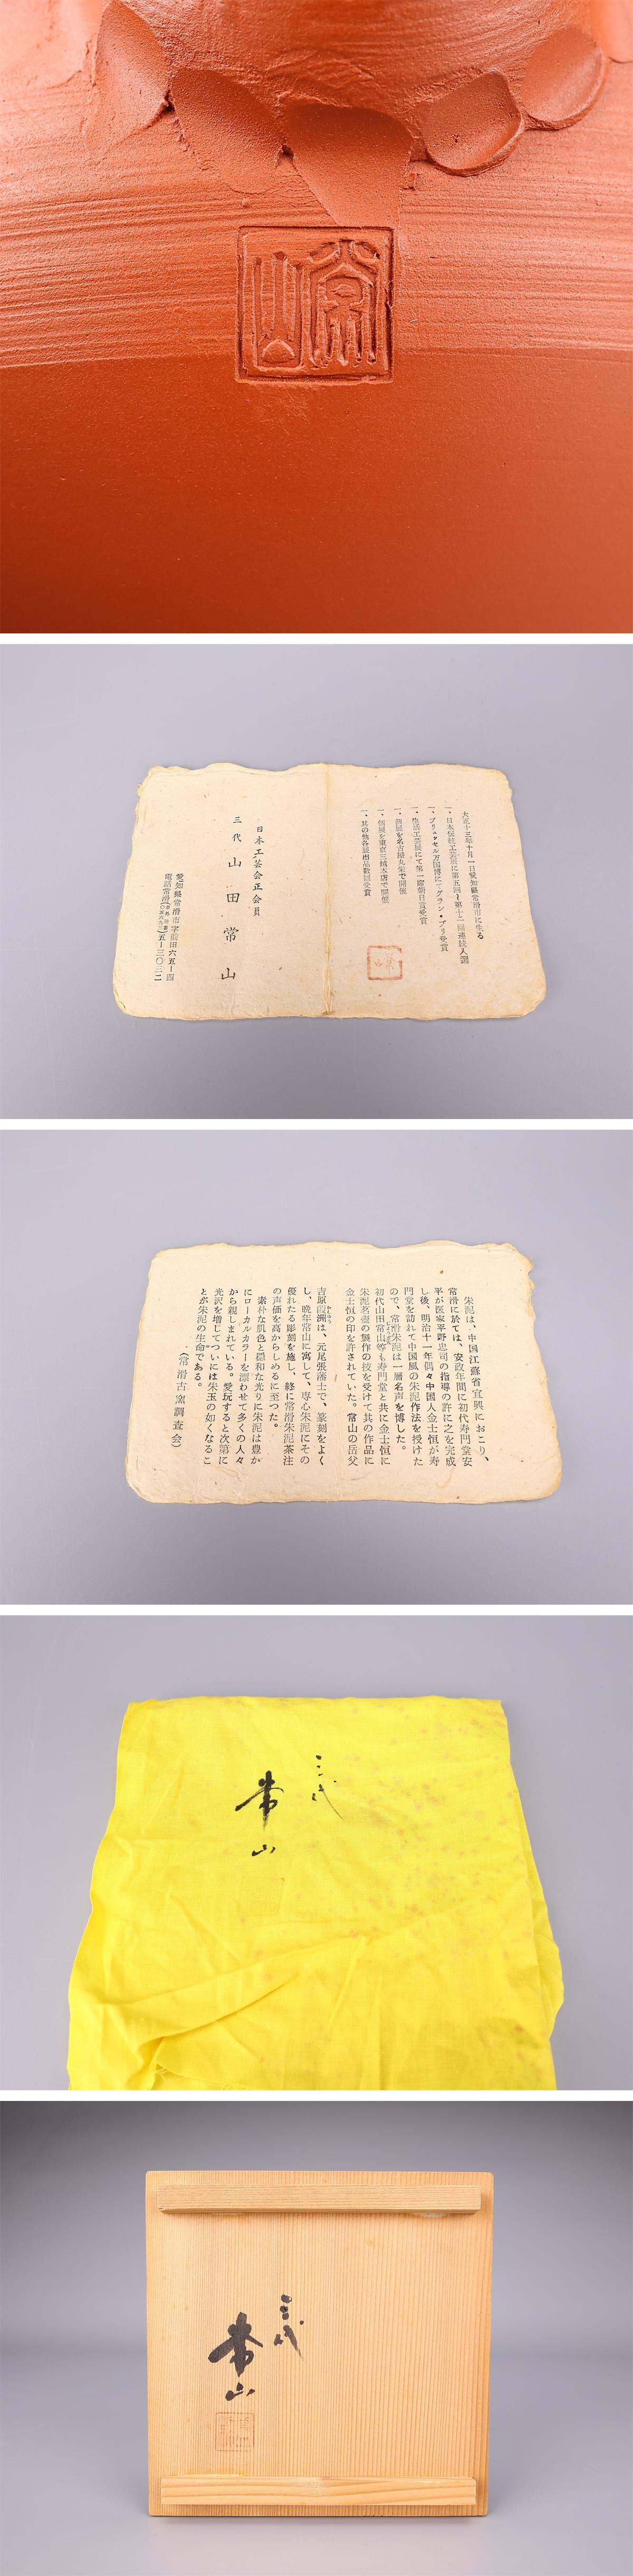 常山
大正十三年十月一日愛知県常滑市に生る
一、日本伝統工芸展に第五回~第十二回連続入選
一、ブリュッセル万国博にてグラン・プリ受賞
一、生活工芸展にて第一席朝日賞受賞
一、個展を名古屋丸栄で開催
一、個展を東京三越本店で開催
一、其の他各展出品数回受賞
日本工芸会正会員
三代 山田常山
愛知県常滑市字前田六五ー四
電話常滑 五ー三〇三二
朱泥は、中国江蘇省宜興におこり、
常滑に於ては、安政年間に初代寿門堂安
平が医家平野忠司の指導の許に之を完成
し後、明治十一年偶々中国人金士恒が寿
門堂を訪れて中国風の朱泥作法を授けた
ので、常滑朱泥は一層名声を博した。
初代山田常山等も寿門堂と共に金士恒に
朱泥茗壺の製作の技を受けて其の作品に
金士恒の印を許されていた。常山の岳父
吉原霞溯は、元尾張藩士で、篆刻をよく
し、晩年常山に寓して、専心朱泥にその
優れたる彫刻を施し、終に常滑朱泥茶注
の声価を高からしめるに至つた。
素朴な肌色と穏和な光りに朱泥は豊か
にローカルカラーを漂わせて多くの人々
から親しまれている。愛玩すると次第に
光沢を増じてついには朱玉の如くなるこ
とが朱泥の生命である。
(常滑古窯調査会)
三代
常山
三代
常山